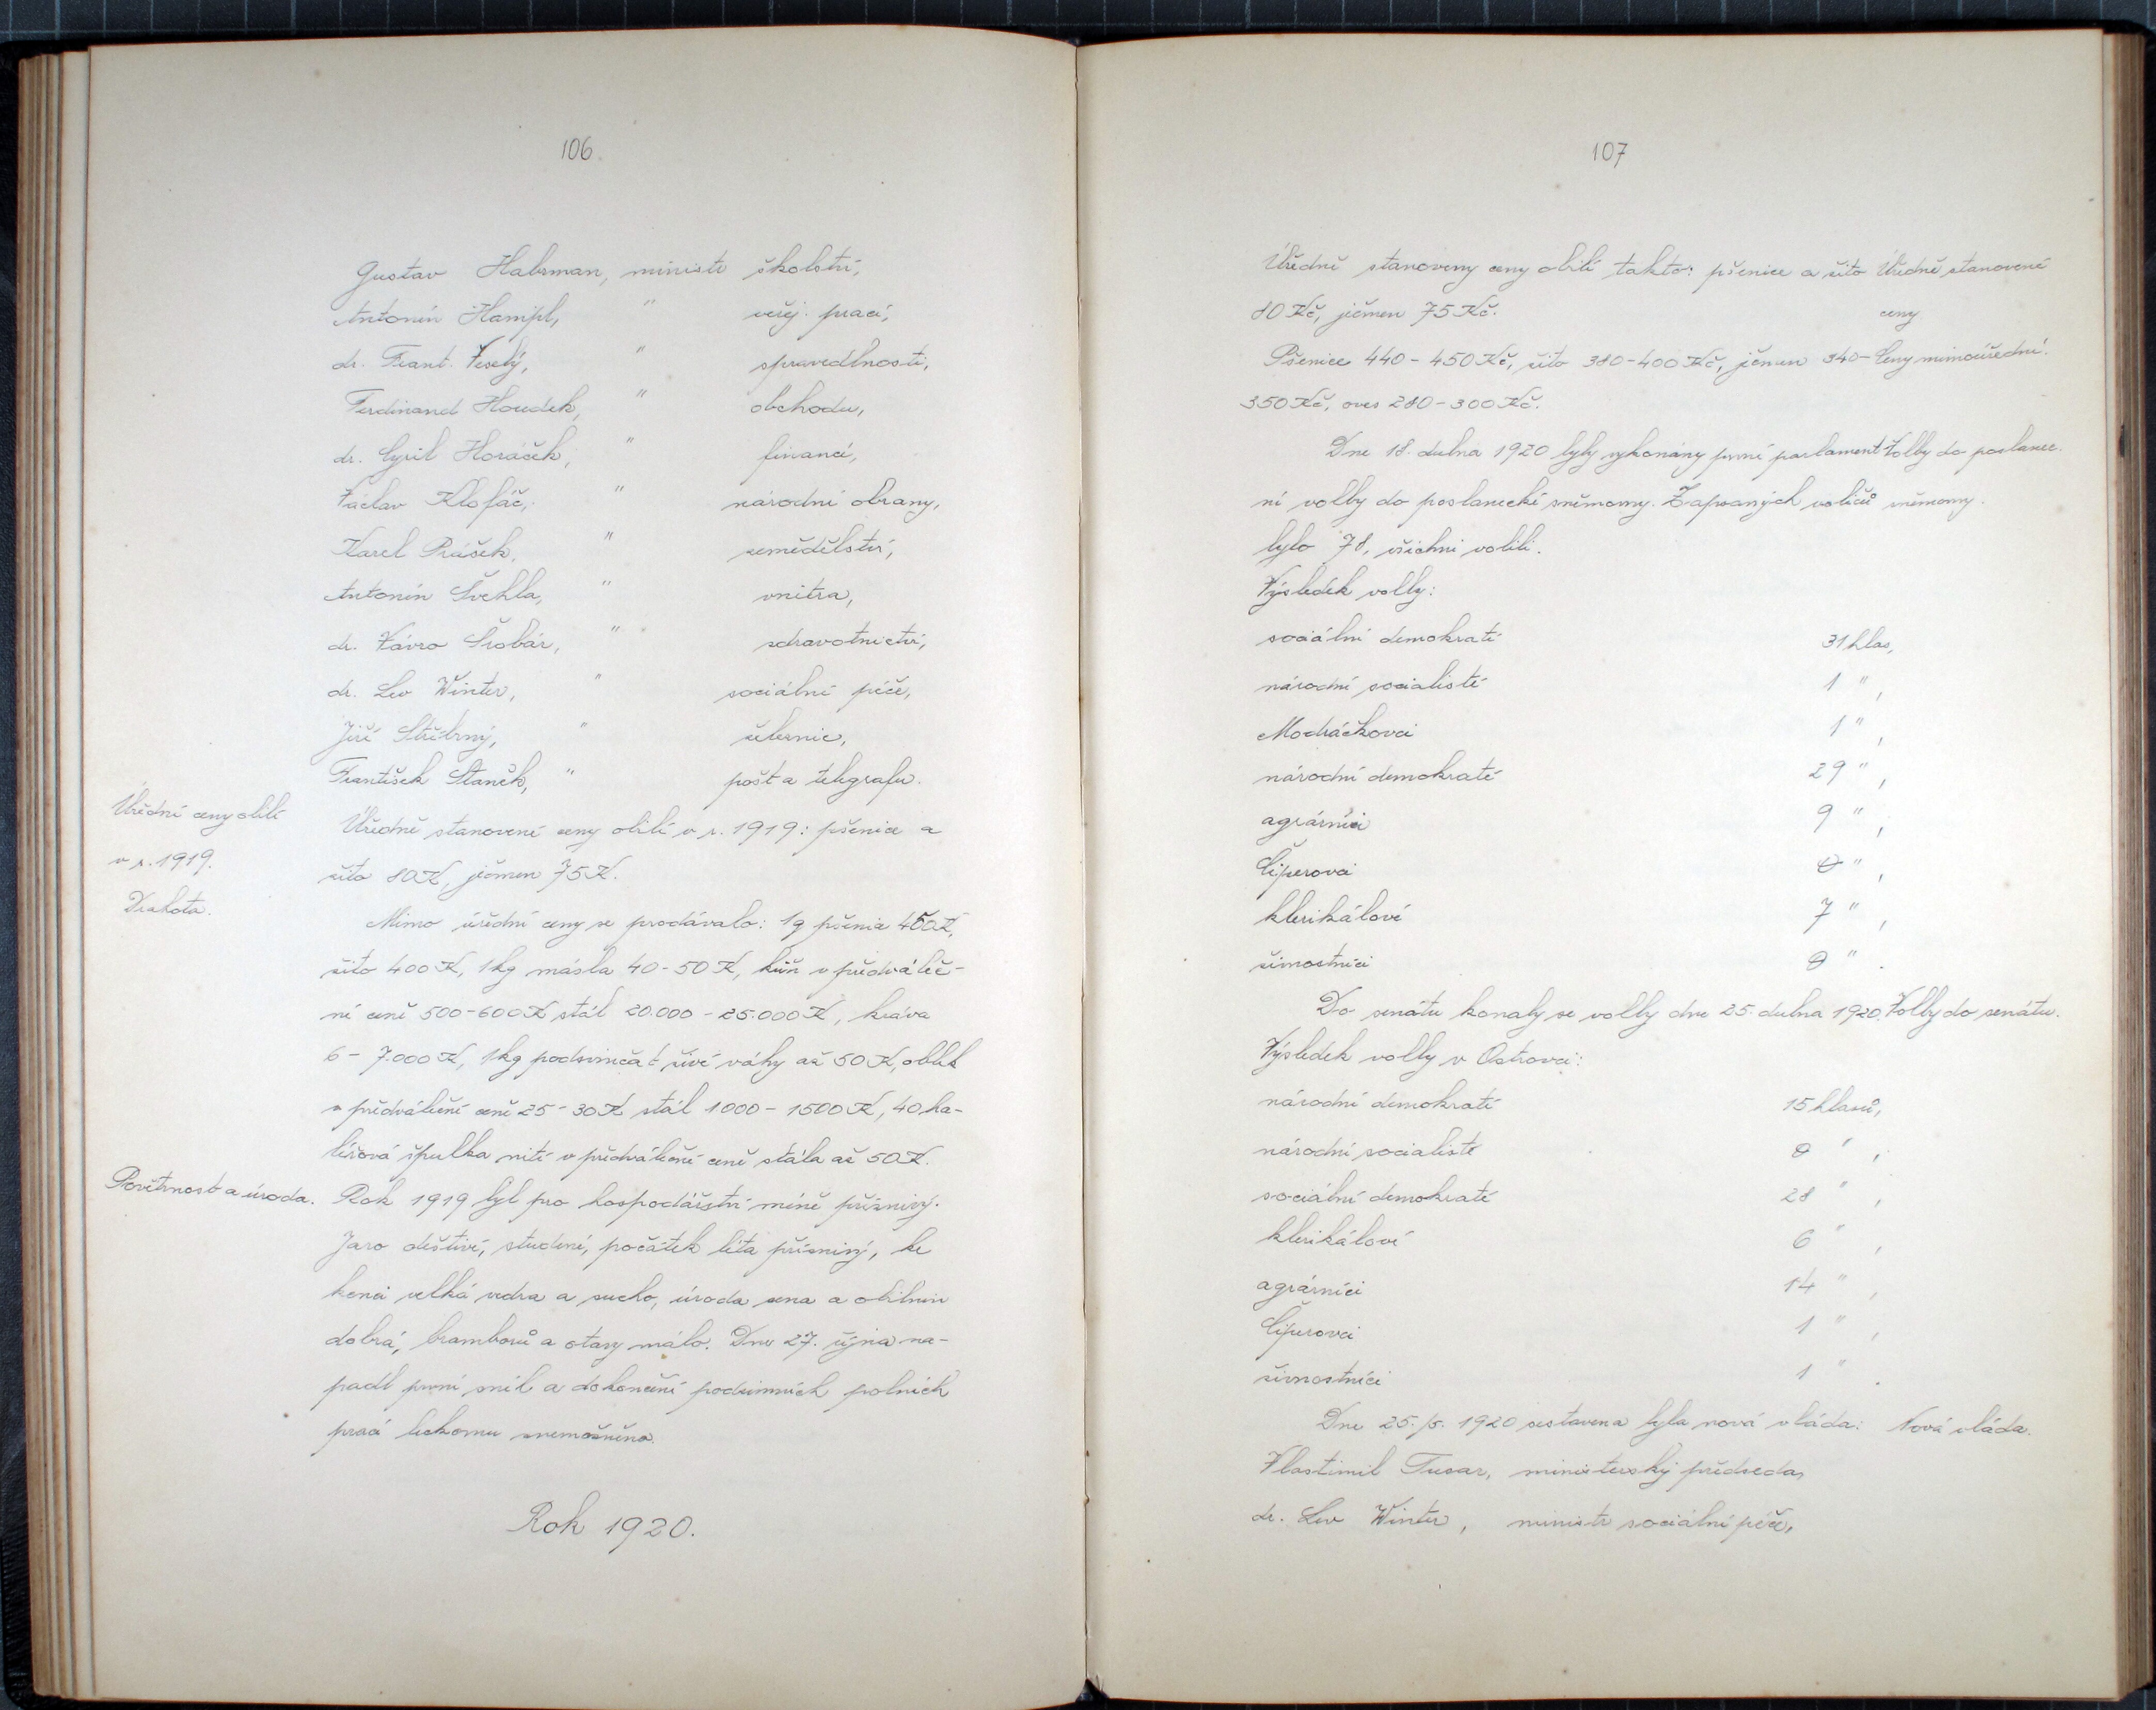 106.
Gustav Habrman, ministr školství,
Antonín Hampl, " veřej. prací,
dr. Frant. Veselý, " spravedlnosti,
Ferdinand Houdek, " obchodu,
dr. Cyril Horáček, " financí,
Václav Klofáč, " národní obrany,
Karel Prášek, " zemědělství,
Antonín Švehla, " vnitra,
dr. Vávro Šrobár, " zdravotnictví,
dr. Lev Winter, " sociální péče,
Jiří Stříbrný, " železnic,
František Staněk, " pošt a telegrafu.
Úřední ceny obilí
v r. 1919.
Úředně stanovené ceny obilí v r. 1919: pšenice a
žito 80 K, ječmen 75 K.
Drahota.
Mimo úřední ceny se prodávalo: 1q pšenice 450 K,
žito 400 K, 1 kg másla 40-50 K, kůň v předváleč-
né ceně 500-600 K stál 20.000-25.000 K, kráva
6-7.000 K, 1 kg podsvinčat živé váhy až 50 K, oblek
v předválečné ceně 25-30 K stál 1000-1500 K, 40 ha-
léřová špulka nití v předválečné ceně stála až 50 K.
Povětrnost a úroda.
Rok 1919 byl pro hospodářství méně příznivý.
Jaro deštivé, studené, počátek léta příznivý, ke
konci velká vedra a sucho, úroda sena a obilnin
dobrá, bramborů a otavy málo. Dne 27. října na-
padl první sníh a dokončení podzimních polních
prací leckomu znemožněno.
Rok 1920.
107
Úředně stanoveny ceny obilí takto: pšenice a žito
80 Kč, ječmen 75 Kč.
Úředně stanovené
ceny
Pšenice 440-450 Kč, žito 380-400 Kč, ječmen 340-
350 Kč, oves 280-300 Kč.
Ceny mimoúřední.
Dne 18. dubna 1920 byly vykonány první parlament-
ní volby do poslanecké sněmovny. Zapsaných voličů
bylo 78, všichni volili.
Volby do poslanec.
sněmovny.
Výsledek volby:
sociální demokraté 31 hlas,
národní socialisté 1 ",
Modráčkovci 1 ",
národní demokraté 29 ",
agrárníci 9 ",
Čiperovci 0 ",
klerikálové 7 ",
živnostníci 0 ".
Do senátu konaly se volby dne 25. dubna 1920.
Volby do senátu.
Výsledek volby v Ostrovci:
národní demokraté 15 hlasů,
národní socialisté 0 ",
sociální demokraté 28 ",
klerikálové 6 ",
agrárníci 14 ",
Čiperovci 1 ",
živnostníci 1 ".
Dne 25./5. 1920 sestavena byla nová vláda:
Nová vláda.
Vlastimil Tusar, ministerský předseda,
dr. Lev Winter, ministr sociální péče,